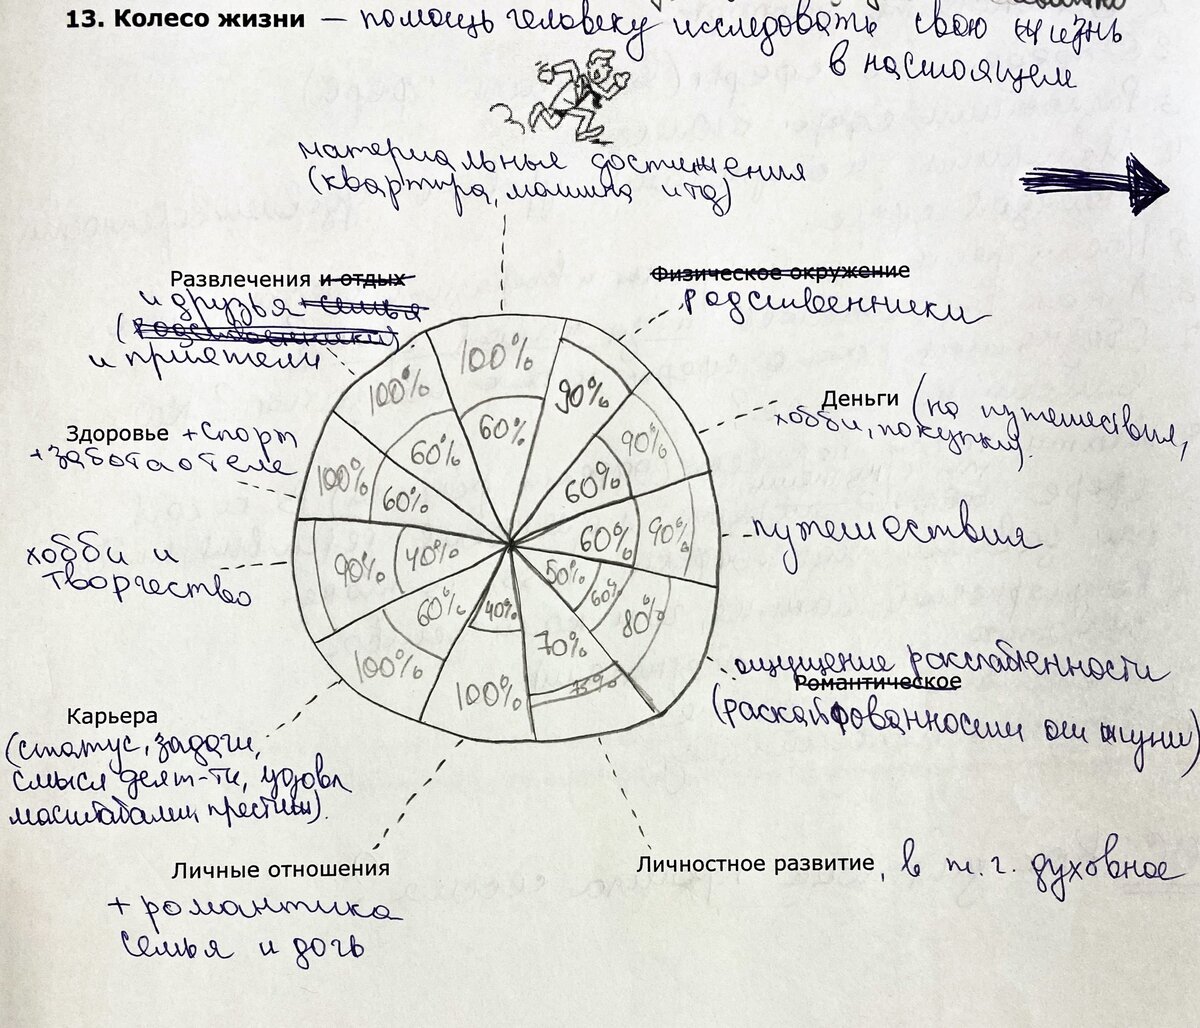 13. Колесо жизни – помощь человеку исследовать свою жизнь
в настоящем
материальные достижения
(квартира, машина и тд)
Развлечения и отдых
и друзья + семья
(родственники)
и приятели
Физическое окружение
родственники
Деньги (на путешествия,
хобби, покупки).
Здоровье + спорт
+ забота о теле
путешествия
хобби и
творчество
ощущение расслабленности
Романтическое
(раскайфованности от жизни)
Карьера
(статус, задачи,
смысл деят-ти, удовл
масштабами, престиж).
Личные отношения
+ романтика
семья и дочь
Личностное развитие, в т.г. духовное
100%
60%
90%
90%
60%
90%
60%
80%
60%
50%
70%
75%
100%
40%
100%
60%
90%
40%
100%
60%
100%
60%